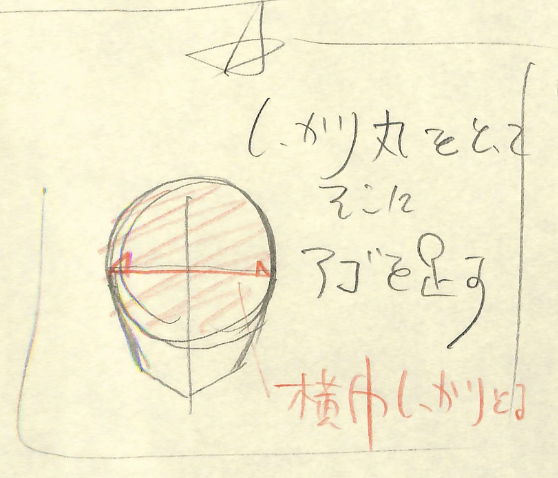 しっかり丸をとって
そこに
アゴを足す
横巾しっかりとる